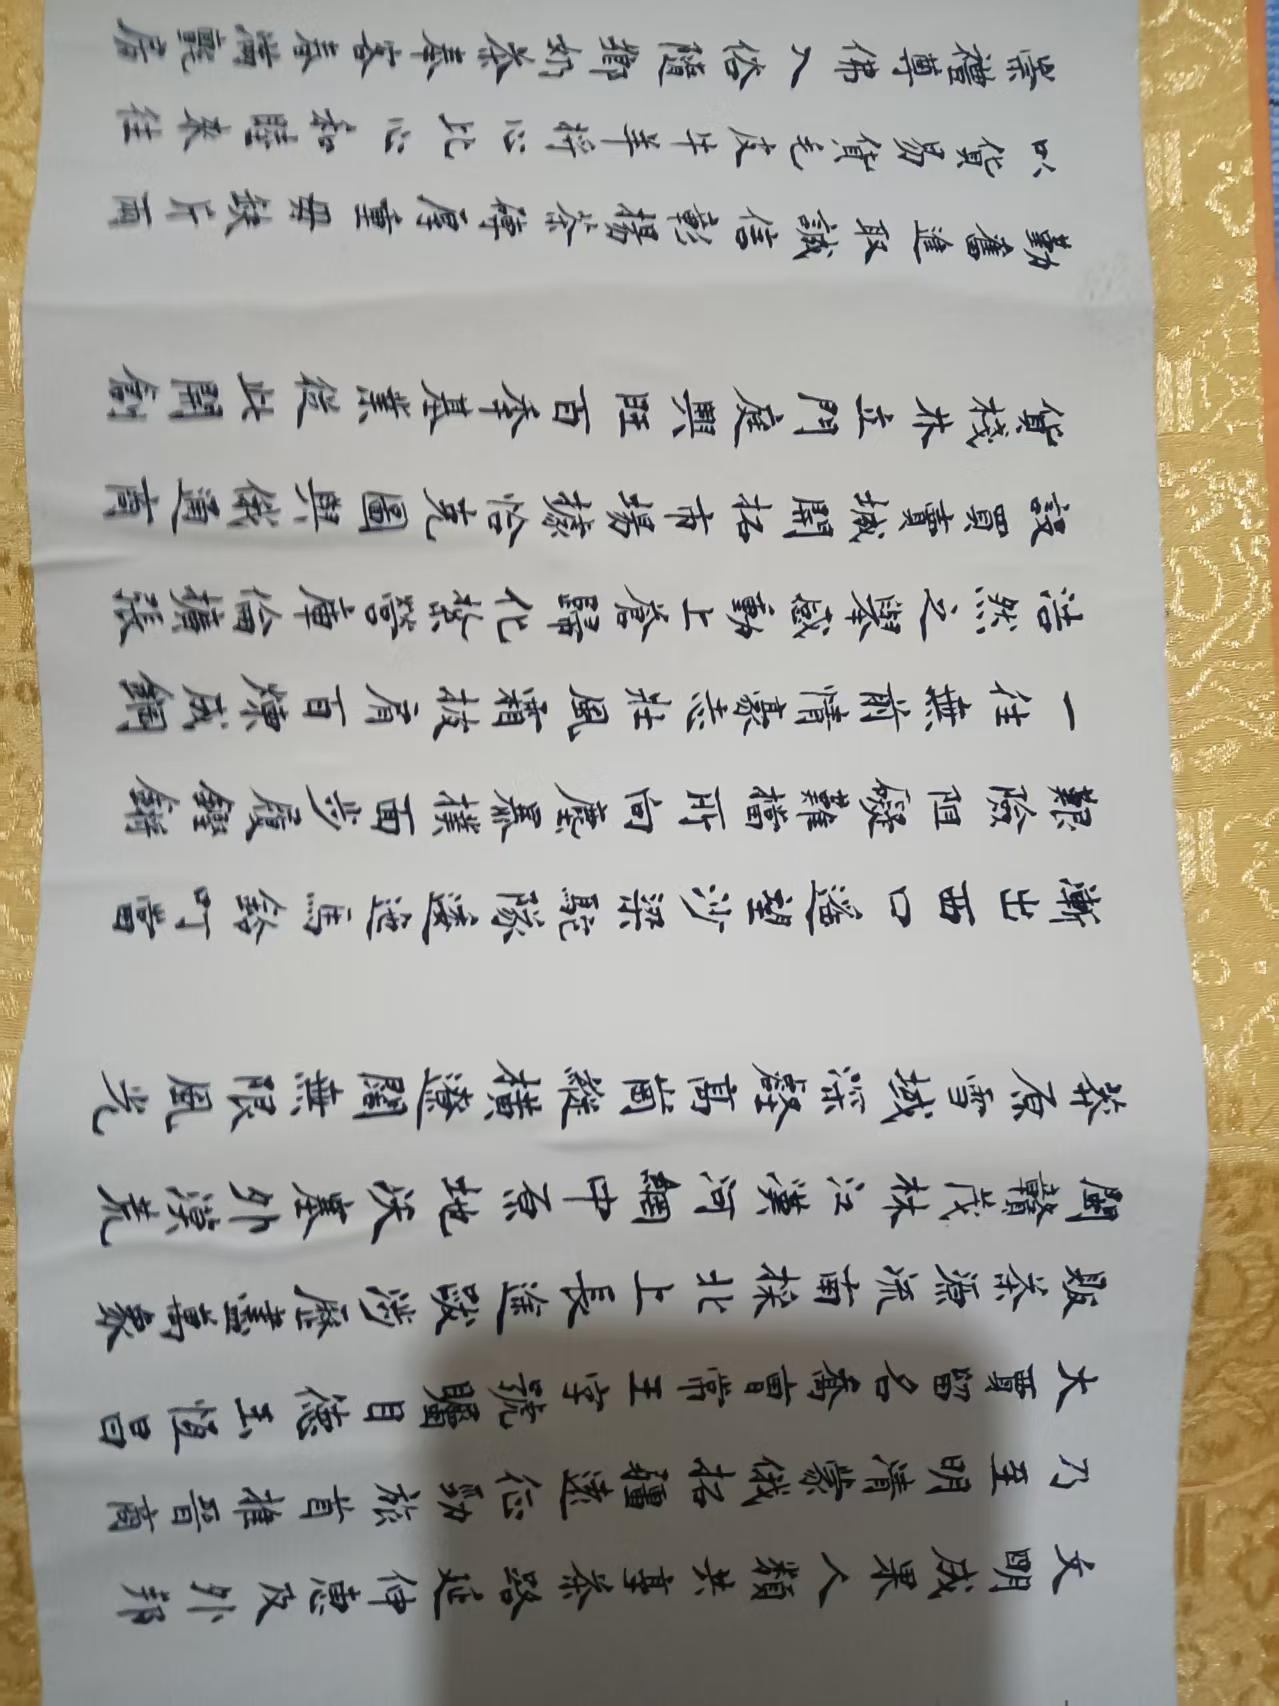 文明成果人類共享茶路延伸惠及外邦
乃至明清蒙俄拓疆遠征勁旅首推晉商
大賈留名喬曹常王字號矚目德玉恆昌
販茶源流南採北上長途跋涉歷盡萬象
閩贛茂林江漢河網中原地沃塞外漠荒
莽原雪域深壑高崗縱橫遼闊無限風光
漸出西口遙望沙梁駝隊逶迤馬鈴叮當
艱險阻礙難擋所向塵暴撲面步履鏗鏘
一往無前情豪志壯風霜披肩百煉成鋼
浩然之舉感動上蒼歸化紮營庫倫擴張
設買賣城開拓市場據恰克圖與俄通商
貨棧林立門庭興旺百秊基業從此開創
勤奮進取誠信彰揚茶磚厚重毋缺斤兩
以貨易貨毛皮牛羊將心比心和睦來往
崇禮尊佛入俗隨鄉奶茶奉客春滿氈房